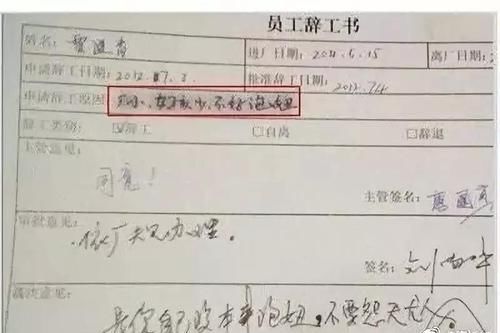 员工辞工书
姓名: 进厂日期: 2011.5.15 离厂日期:
申请辞工日期: 2012.07.2. 批准辞工日期: 2012.7.4
申请辞工原因: 厂小、女孩少、不好泡妞
辞工类别: ☑辞工 □自离 □辞退
主管意见:
同意!
主管签名:
审批意见:
依厂规办理。
签名: 刘
高次意见:
是你自己没本事泡妞,不要怨天尤人